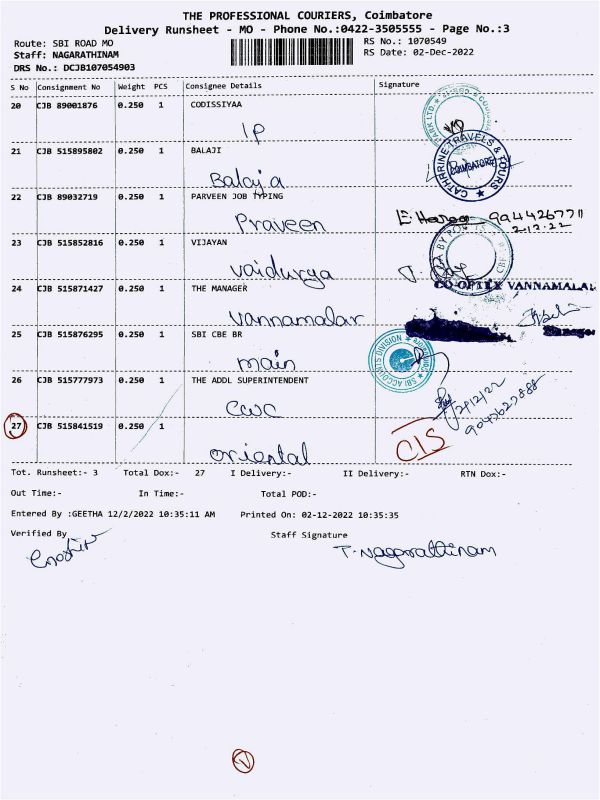 THE PROFESSIONAL COURIERS, Coimbatore
Delivery Runsheet - MO - Phone No.:0422-3505555 - Page No.:3
Route: SBI ROAD MO
RS No.: 1070549
Staff: NAGARATHINAM
RS Date: 02-Dec-2022
DRS No.: DCJB107054903
S No Consignment No Weight PCS Consignee Details Signature
20 CJB 89001876 0.250 1 CODISSIYAA
IP
21 CJB 515895802 0.250 1 BALAJI
Balaja
CATHARINE TRAVELS & TOURS
COIMBATORE
22 CJB 89032719 0.250 1 PARVEEN JOB TYPING
Praveen
2.12.22
23 CJB 515852816 0.250 1 VIJAYAN
Vaidurga
24 CJB 515871427 0.250 1 THE MANAGER
CO OPTEX VANNAMALAR
Vannamalar
Manager
25 CJB 515876295 0.250 1 SBI CBE BR
main
SBI ACCOUNTS DIVISION
26 CJB 515777973 0.250 1 THE ADDL SUPERINTENDENT
CWC
2/12/22
27 CJB 515841519 0.250 1
oriental
CIS
Tot. Runsheet:- 3 Total Dox:- 27 I Delivery:- II Delivery:- RTN Dox:-
Out Time:- In Time:- Total POD:-
Entered By :GEETHA 12/2/2022 10:35:11 AM Printed On: 02-12-2022 10:35:35
Verified By
Staff Signature
T. Nagarathinam